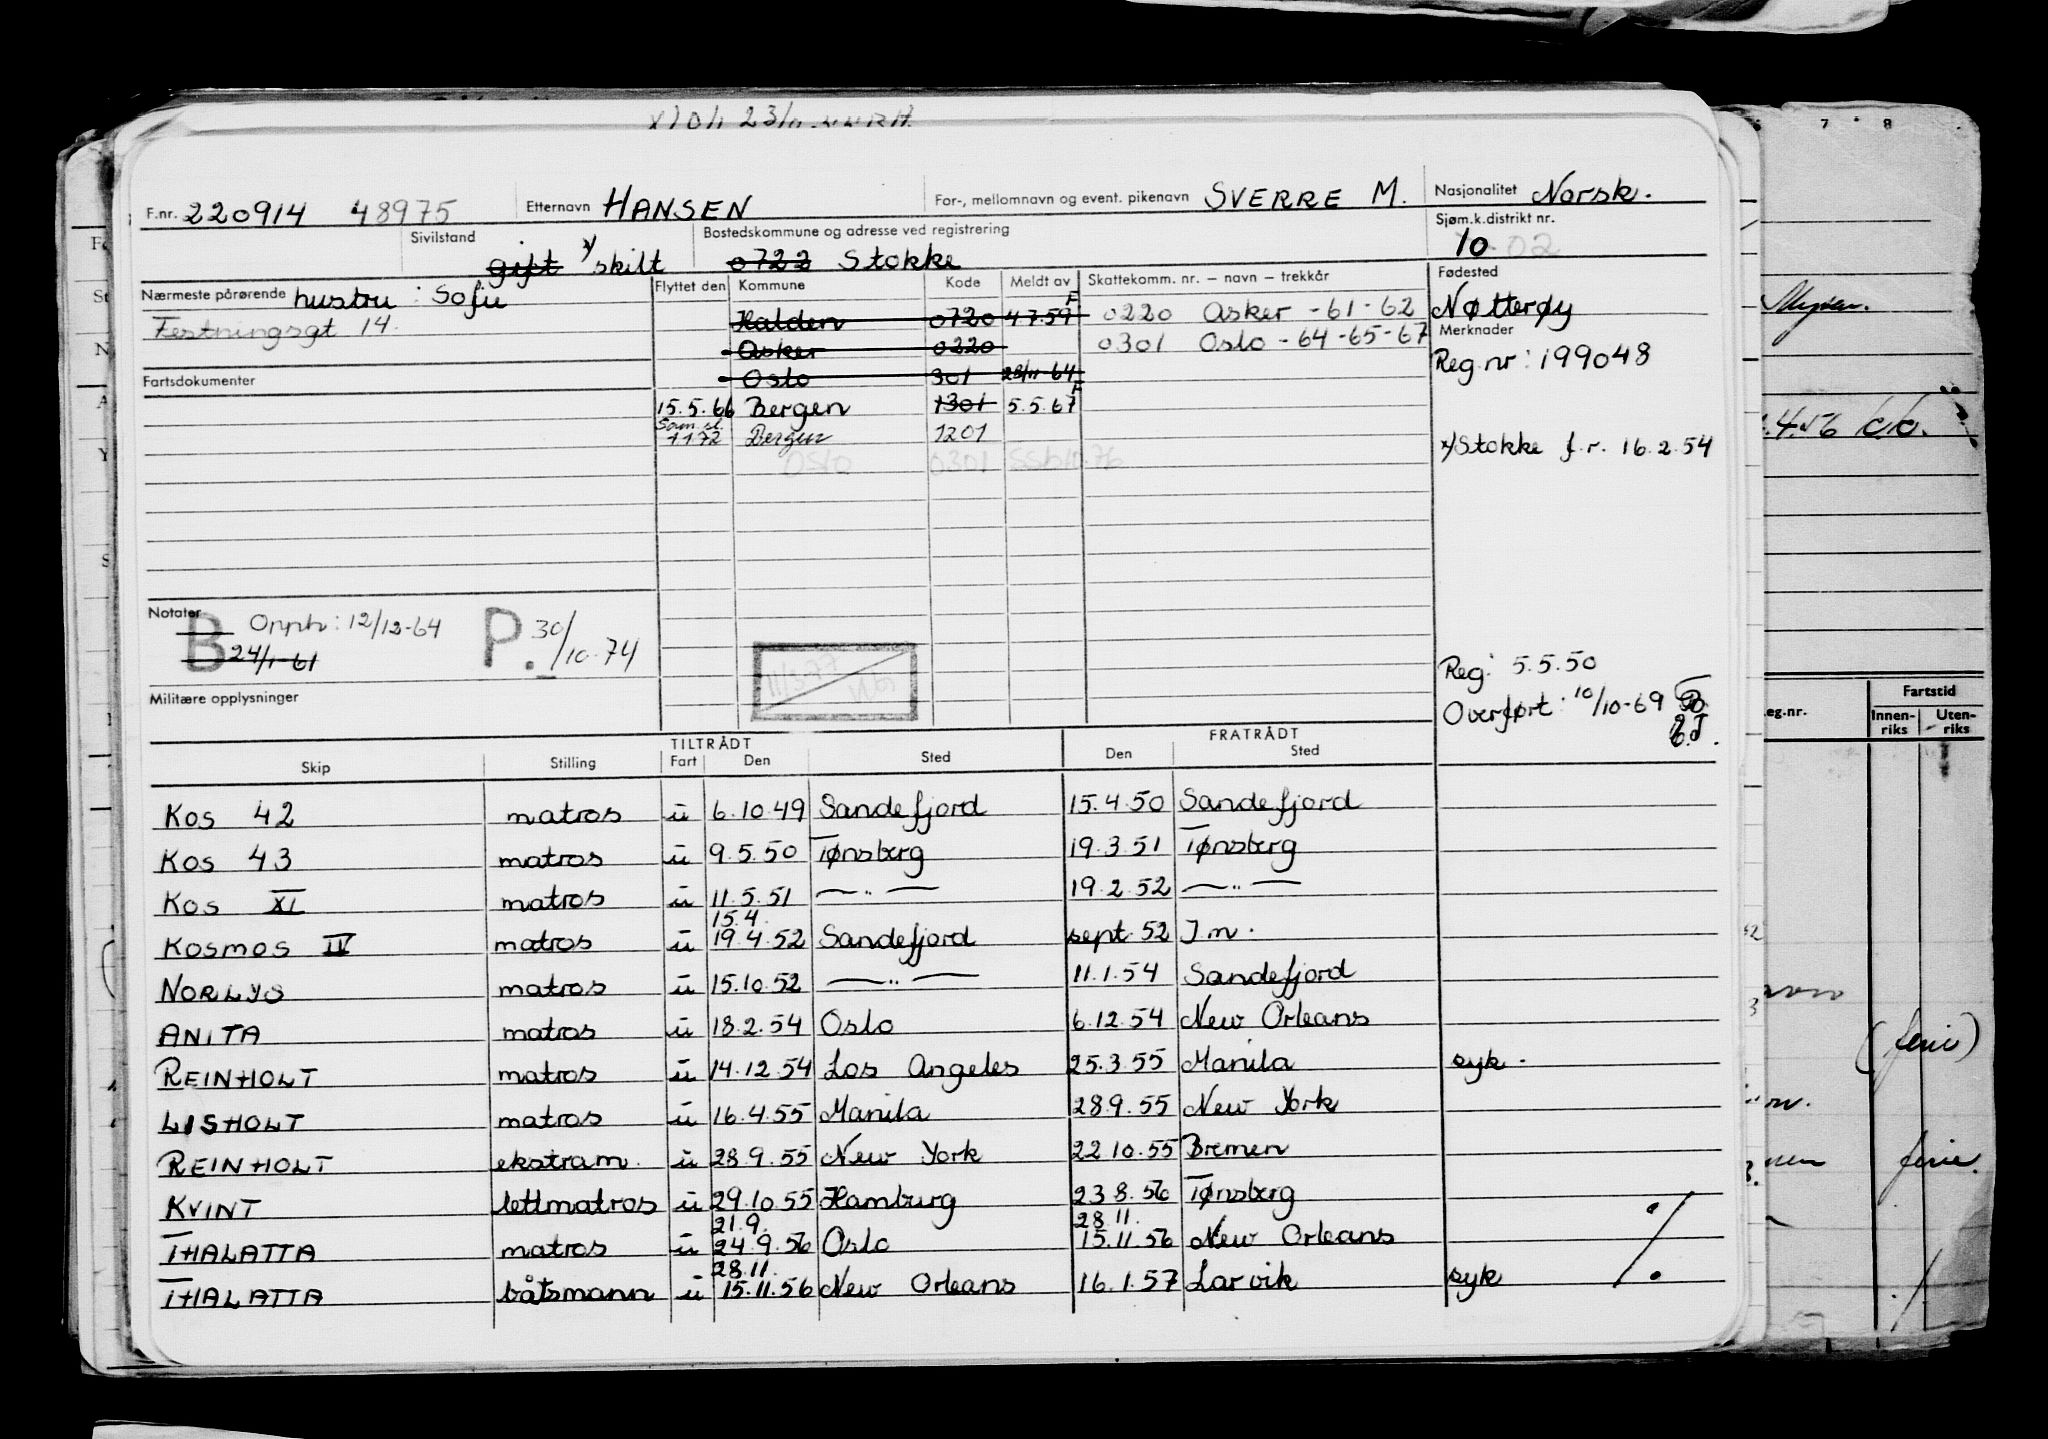 F.nr. 220914 48975 Etternavn HANSEN For-, mellomnavn og event. pikenavn SVERRE M. Nasjonalitet Norsk.
Sivilstand gift x/ skilt Bostedskommune og adresse ved registrering 0722 Stokke Sjøm.k.distrikt nr. 10 02
Nærmeste pårørende hustru : Sofie Flyttet den Kommune Kode Meldt av Skattekomm. nr. – navn – trekkår Fødested
Festningsgt 14. Halden 0720 4 7.59 F 0220 Asker - 61 - 62 Nøtterøy
Asker 0220 0301 Oslo - 64 - 65 - 67 Merknader
Fartsdokumenter Oslo 301 28/11-64 Reg.nr : 199048
15.5.66 Bergen 1301 5.5.67 F
Sam.sl. 1 1 72 Bergen 1201 x/Stokke f.r. 16.2.54
Oslo 0301 76
Notater
B Opph: 12/12-64 P. 30/10-74
24/1-61
11/3 77
Reg. 5.5.50
Militære opplysninger
Overført: 10/10-69
TILTRÅDT FRATRÅDT
Skip Stilling Fart Den Sted Den Sted
KOS 42 matros u 6.10.49 Sandefjord 15.4.50 Sandefjord
KOS 43 matros u 9.5.50 Tønsberg 19.3.51 Tønsberg
KOS XI matros u 11.5.51 — " — 19.2.52 — " —
15.4.
KOSMOS IV matros u 19.4.52 Sandefjord sept. 52 I.m.
NORLYS matros u 15.10.52 — " — 11.1.54 Sandefjord
ANITA matros u 18.2.54 Oslo 6.12.54 New Orleans
REINHOLT matros u 14.12.54 Los Angeles 25.3.55 Manila syk.
LISHOLT matros u 16.4.55 Manila 28.9.55 New York
REINHOLT ekstram. u 28.9.55 New York 22.10.55 Bremen
KVINT lettmatros u 29.10.55 Hamburg 23.8.56 Tønsberg
21.9. 28.11.
THALATTA matros u 24.9.56 Oslo 15.11.56 New Orleans
28.11.
THALATTA båtsmann u 15.11.56 New Orleans 16.1.57 Larvik syk ./.
7 8
.4.56
Fartstid
eg.nr. Innen-riks Uten-riks
(ferie)
ferie.